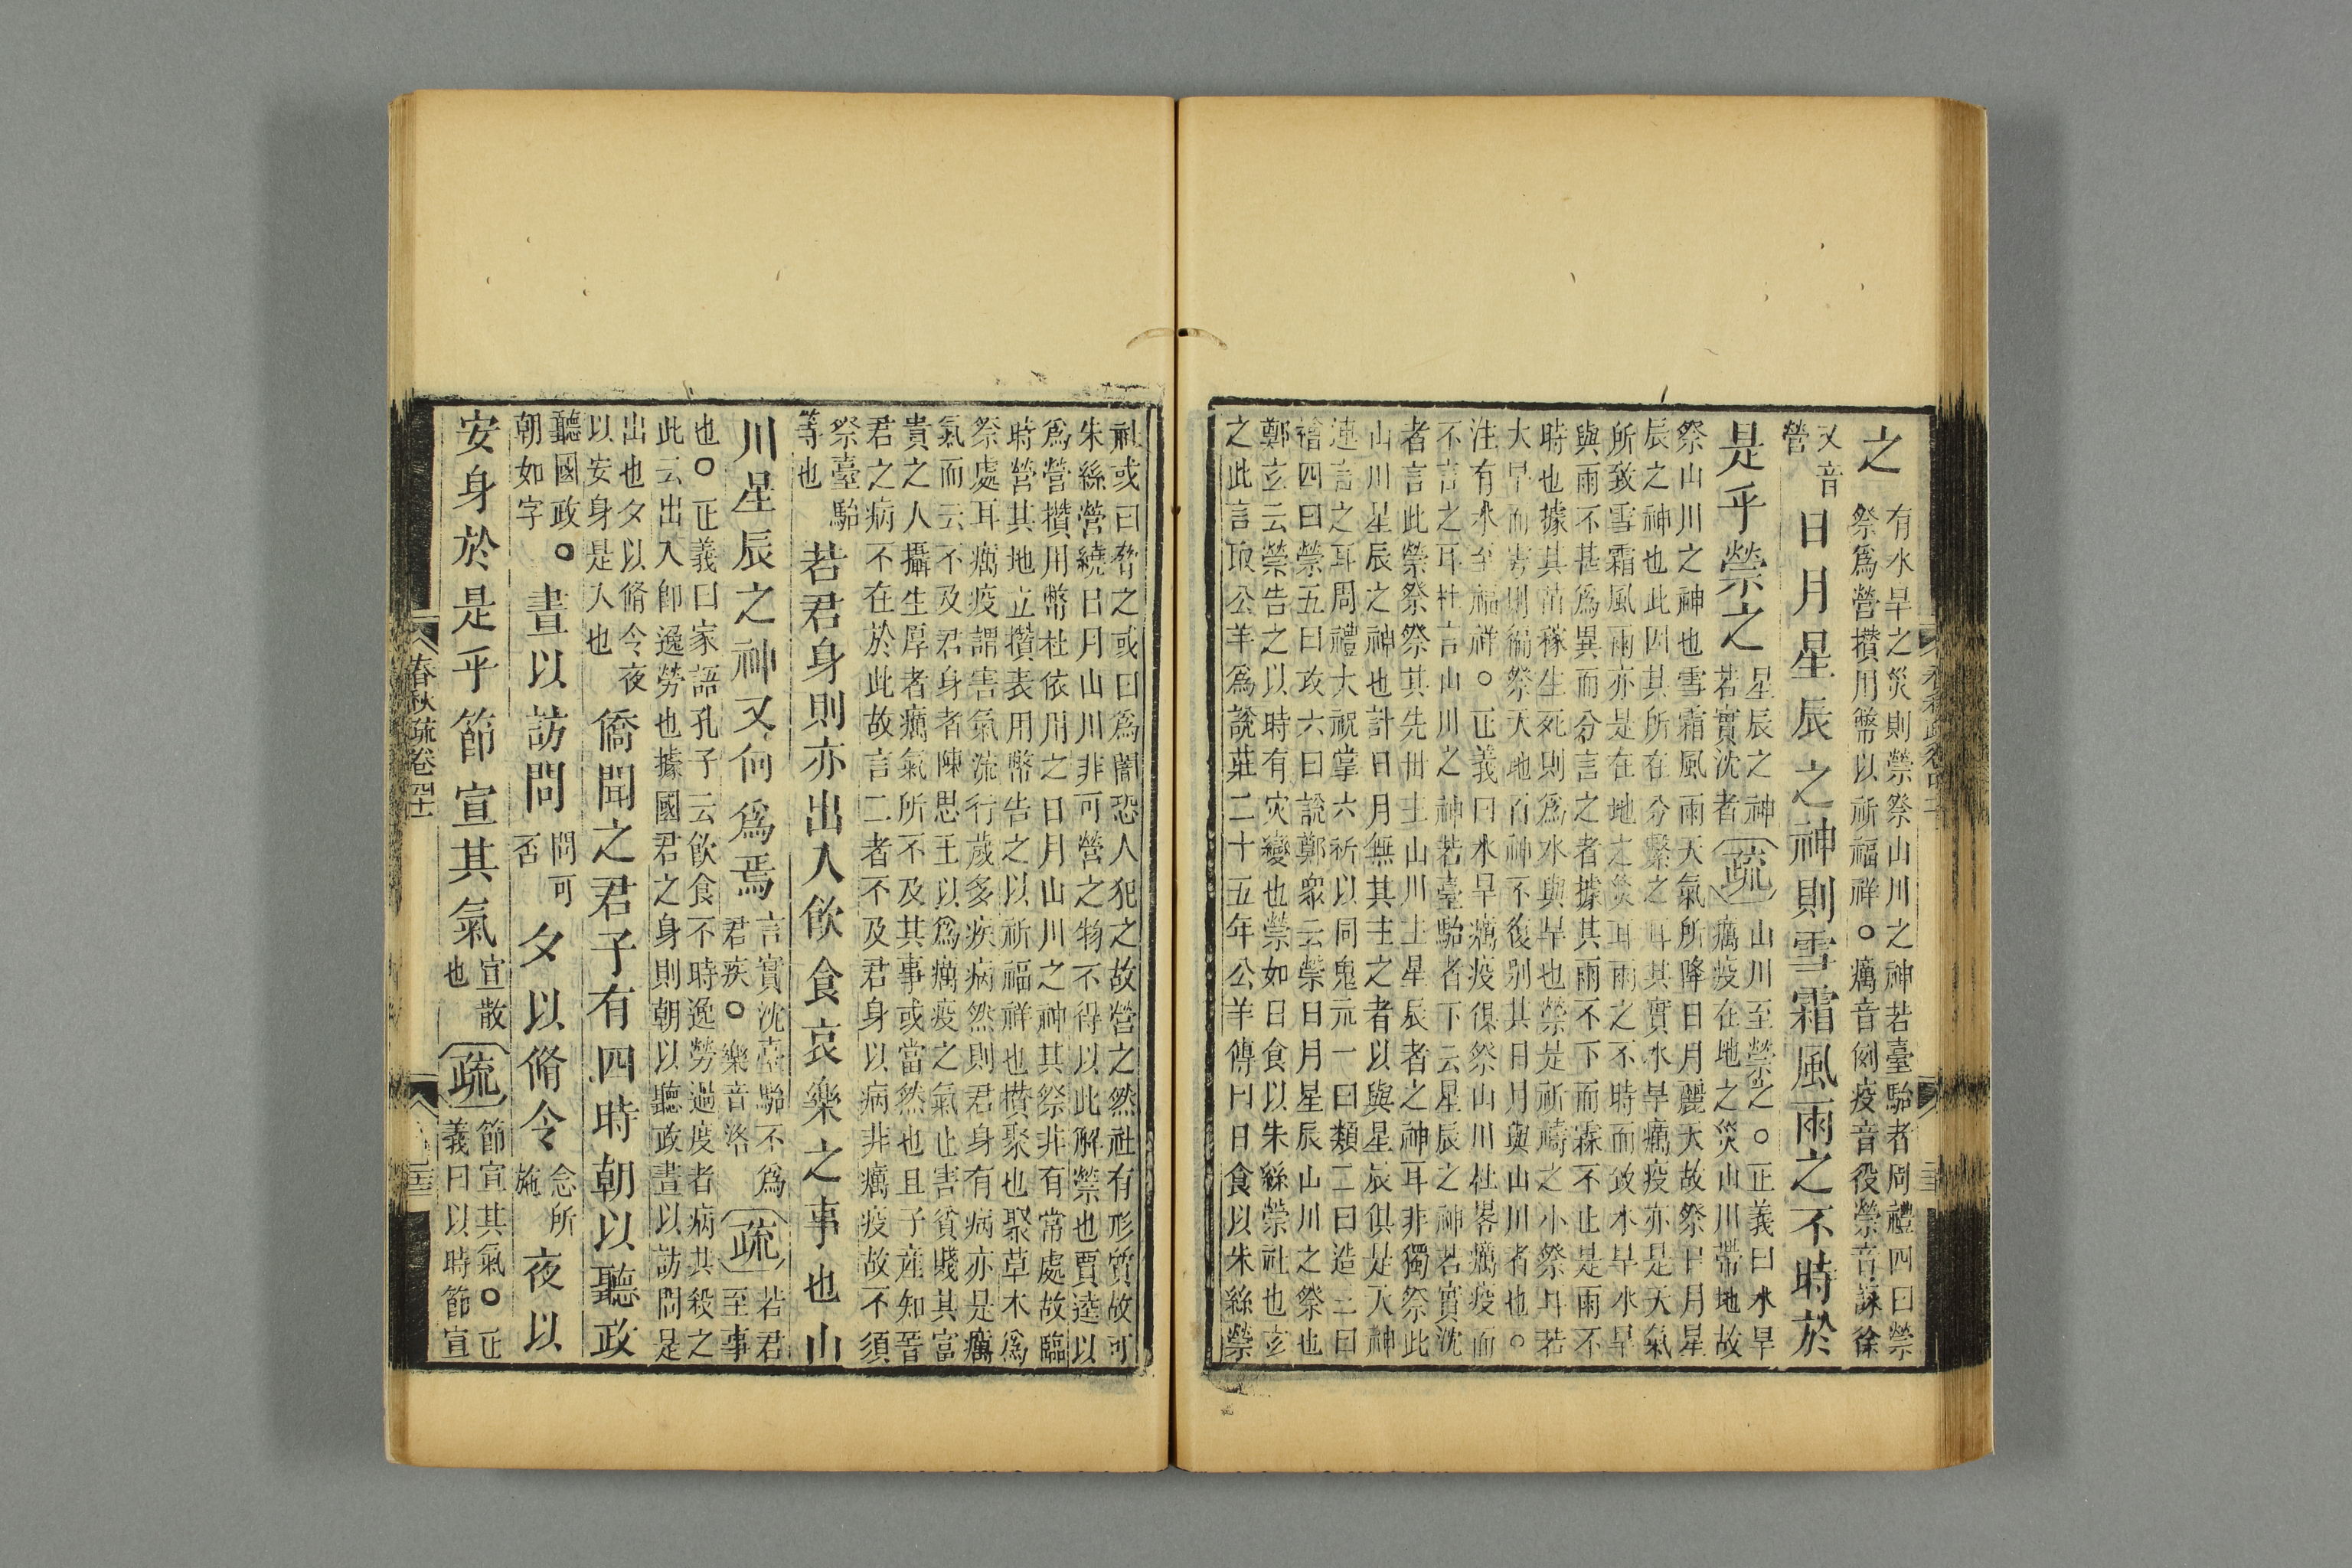 之 有水旱之災則禜祭山川之神若臺駘者周禮四曰禜
祭爲營攢用幣以祈福祥○癘音例疫音役禜音詠徐
又音
營 日月星辰之神則雪霜風雨之不時於
是乎禜之 星辰之神
若實沈者 疏 山川至禜之○正義曰水旱
癘疫在地之災山川帶地故
祭山川之神也雪霜風雨天氣所降日月麗天故祭日月星
辰之神也此因其所在分繫之耳其實水旱癘疫亦是天氣
所致雪霜風雨亦是在地之災耳雨之不時而致水旱水旱
與雨不甚爲異而分言之者據其雨不下而霖不止是雨不
時也據其苗稼生死則爲水與旱也禜是祈禱之小祭耳若
大旱而雩則徧祭天地百神不復別其日月與山川者也○
注有水至福祥○正義曰水旱癘疫俱祭山川杜畧癘疫而
不言之耳杜言山川之神若臺駘者下云星辰之神若實沈
者言此禜祭祭其先世主山川主星辰者之神耳非獨祭此
山川星辰之神也計日月無其主之者以與星辰俱是天神
連言之耳周禮大祝掌六祈以同鬼元一曰類二曰造三曰
禬四曰禜五曰攻六曰說鄭衆云禜日月星辰山川之祭也
鄭玄云禜告之以時有灾變也禜如日食以朱絲禜社也玄
之此言取公羊爲說莊二十五年公羊傳曰日食以朱絲禜
社或曰脅之或曰爲闇恐人犯之故營之然社有形質故可
朱絲營繞日月山川非可營之物不得以此解禜也賈逵以
爲營攢用幣杜依用之日月山川之神其祭非有常處故臨
時營其地立攢表用幣告之以祈福祥也攢聚也聚草木爲
祭處耳癘疫謂害氣流行歲多疾病然則君身有病亦是癘
氣而云不及君身者陳思王以爲癘疫之氣止害貧賤其富
貴之人攝生厚者癘氣所不及其事或當然也且子產知晉
君之病不在於此故言二者不及君身以病非癘疫故不須
祭臺駘
等也 若君身則亦出入飲食哀樂之事也山
川星辰之神又何爲焉 言實沈臺駘不爲
君疾○樂音洛 疏 若君
至事
也○正義曰家語孔子云飲食不時逸勞過度者病共殺之
此云出入卽逸勞也據國君之身則朝以聽政晝以訪問是
出也夕以脩令夜
以安身是入也 僑聞之君子有四時朝以聽政
聽國政○
朝如字 晝以訪問 問可
否 夕以脩令 念所
施 夜以
安身於是乎節宣其氣 宣散
也 疏 節宣其氣○正
義曰以時節宣
春秋疏卷四十一